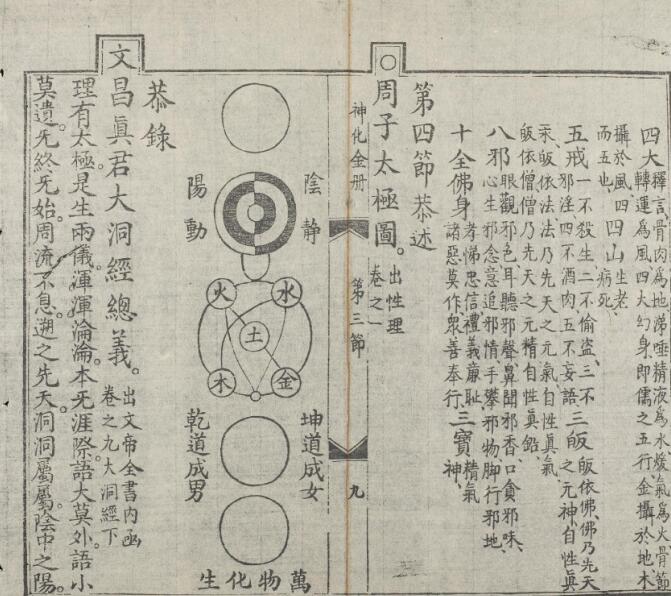 四大釋言骨肉為地涕唾精液為水煖氣為火骨節
轉運為風四大幻身即儒之五行金攝於地木
攝於風四四山生老
而五也病死
五戒一不殺生二不偷盜三不
邪淫四不酒肉五不妄語三皈皈依佛佛乃先天
之元神自性眞
炁皈依法法乃先天之元氣自性眞氣
皈依僧僧乃先天之元精自性眞鉛
八邪眼觀邪色耳聽邪聲鼻聞邪香口貪邪味
心生邪念意追邪情手攀邪物脚行邪地
十全佛身孝悌忠信禮義廉恥
諸惡莫作衆善奉行三寶精氣
神
第四節恭述
○周子太極圖。出性理
卷之一
神化金册
第三節
九
陰靜
陽動
火
水
土
木
金
坤道成女
乾道成男
萬物化生
恭錄
文昌眞君大洞經總義。出文帝全書内函
卷之九大洞經下
理有太極。是生兩儀。渾渾淪淪。本无涯際。語大莫外。語小
莫遺。无終无始。周流不息。遡之先天。洞洞屬屬。陰中之陽。